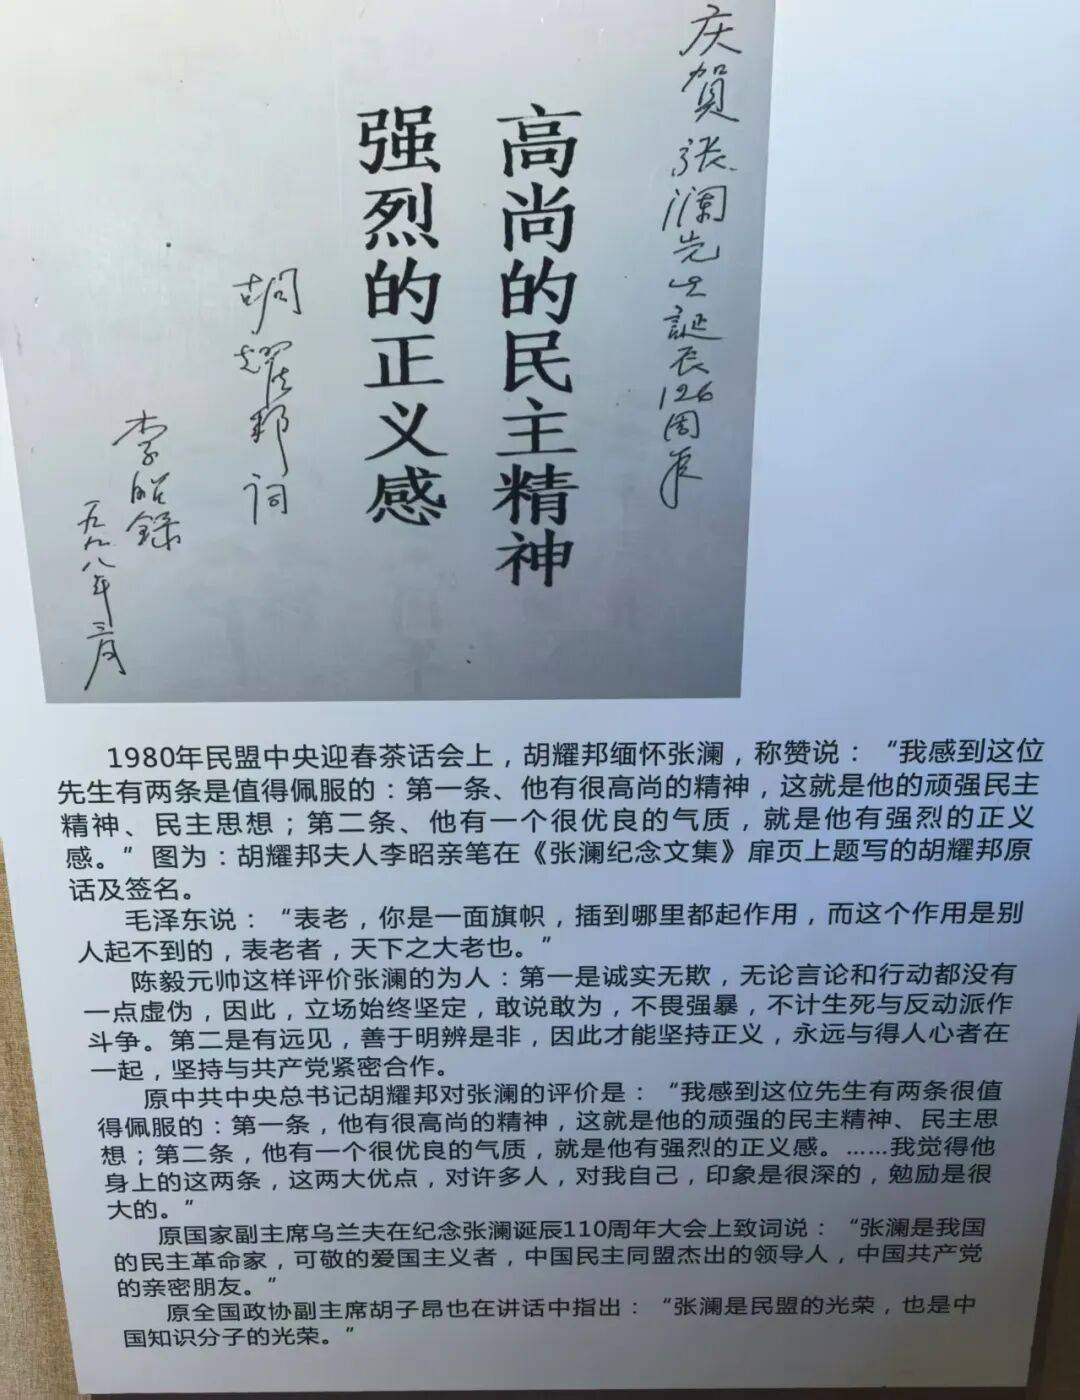 庆賀張瀾先生誕辰126周年
高尚的民主精神
强烈的正义感
胡耀邦词
李昭錄
一九九八年三月
1980年民盟中央迎春茶话会上，胡耀邦缅怀张澜，称赞说：“我感到这位
先生有两条是值得佩服的：第一条、他有很高尚的精神，这就是他的顽强民主
精神、民主思想；第二条、他有一个很优良的气质，就是他有强烈的正义
感。”图为：胡耀邦夫人李昭亲笔在《张澜纪念文集》扉页上题写的胡耀邦原
话及签名。
毛泽东说：“表老，你是一面旗帜，插到哪里都起作用，而这个作用是别
人起不到的，表老者，天下之大老也。”
陈毅元帅这样评价张澜的为人：第一是诚实无欺，无论言论和行动都没有
一点虚伪，因此，立场始终坚定，敢说敢为，不畏强暴，不计生死与反动派作
斗争。第二是有远见，善于明辨是非，因此才能坚持正义，永远与得人心者在
一起，坚持与共产党紧密合作。
原中共中央总书记胡耀邦对张澜的评价是：“我感到这位先生有两条很值
得佩服的：第一条，他有很高尚的精神，这就是他的顽强的民主精神、民主思
想；第二条，他有一个很优良的气质，就是他有强烈的正义感。……我觉得他
身上的这两条，这两大优点，对许多人，对我自己，印象是很深的，勉励是很
大的。”
原国家副主席乌兰夫在纪念张澜诞辰110周年大会上致词说：“张澜是我国
的民主革命家，可敬的爱国主义者，中国民主同盟杰出的领导人，中国共产党
的亲密朋友。”
原全国政协副主席胡子昂也在讲话中指出：“张澜是民盟的光荣，也是中
国知识分子的光荣。”